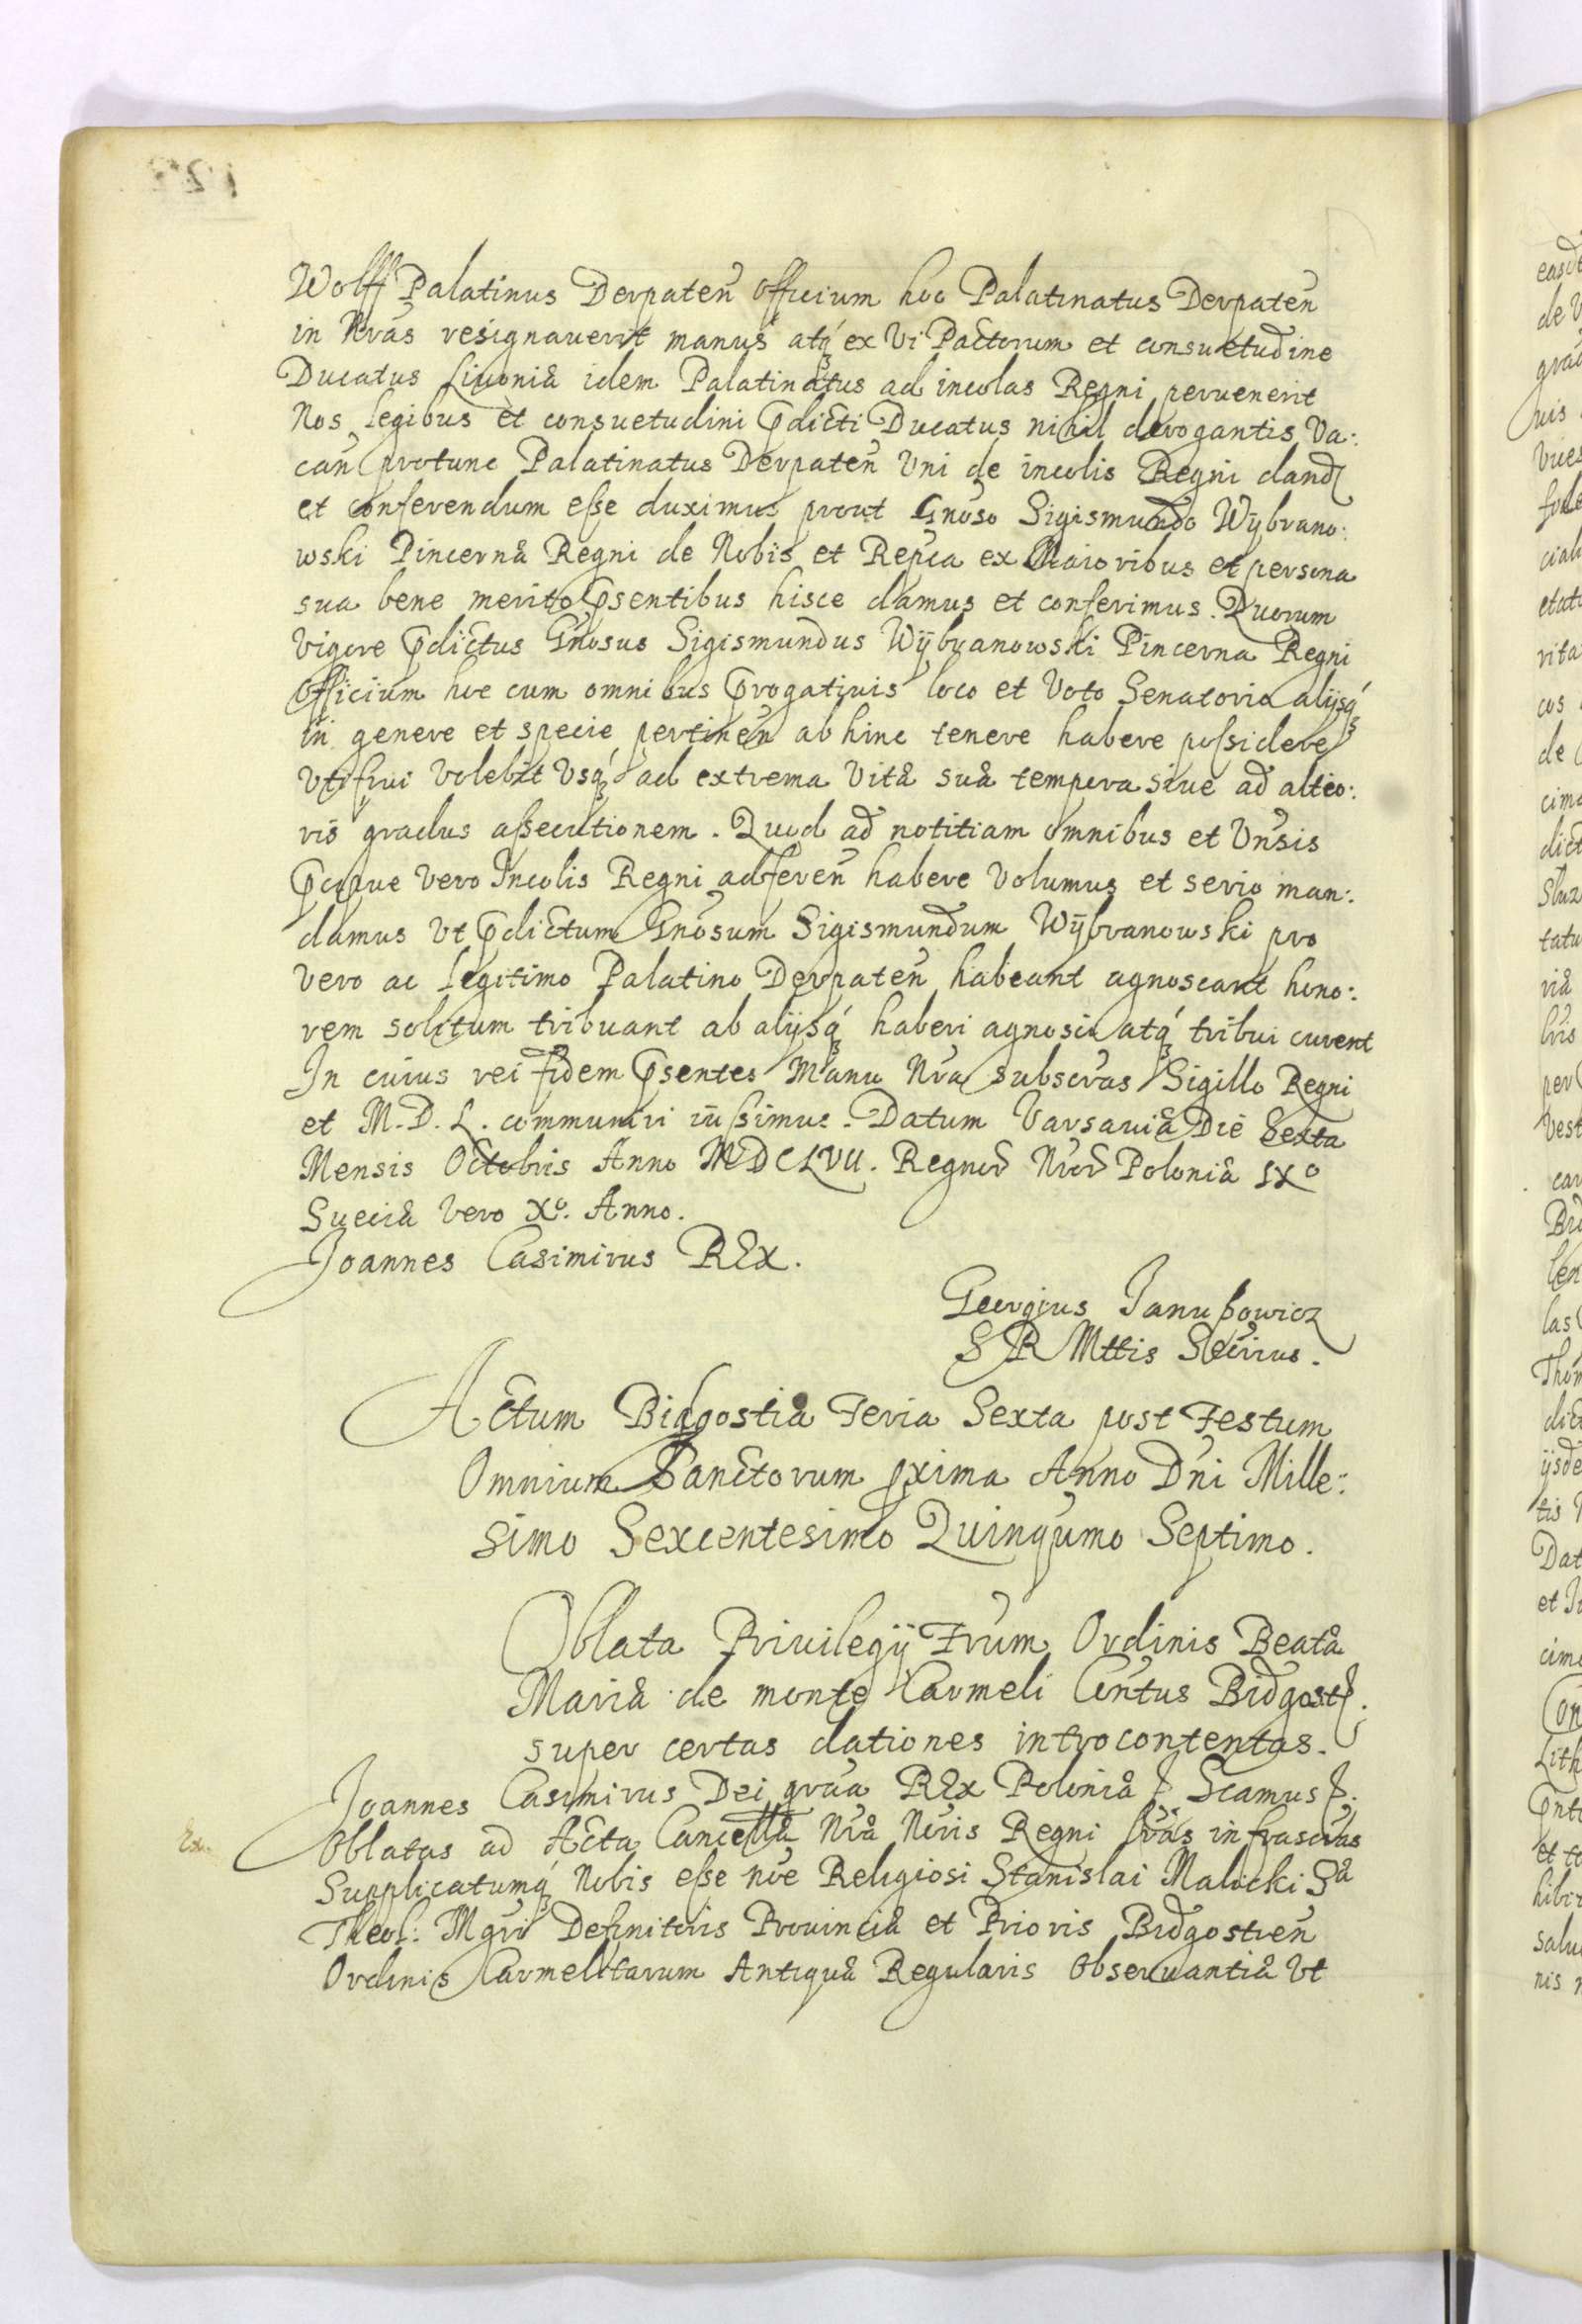 Wolff Palatinus Derpateñ Officium hoc Palatinatus Derpateñ
in Nras resignauerit manus atq́ ex Vi Pactorum et consuetudine
Ducatus Liuoniæ idem Palatinatus ad incolas Regni peruenerit
Nos legibus et consuetudini p̃dicti Ducatus nihil derogantis Va:
cañ protunc Palatinatus Derpateñ Vni de incolis Regni dand
et conferendum eſse duximus prout Gnoso Sigismundo Wÿbrano:
wski Pincernæ Regni de Nobis et Repca ex Maioribus et persona
sua bene merito p̃sentibus hisce damus et conferimus. Quorum
vigore p̃dictus Gnosus Sigismundus Wÿbranowski Pincerna Regni
Officium hoc cum omnibus p̃rogatiuis loco et Voto Senatorio alijsq́
in genere et specie pertineñ ab hinc tenere habere poſsidere
Vti frui Volebit Vsq́ ad extrema Vitæ suæ tempora siue ad altio:
ris gradus aſsecutionem. Quod ad notitiam omnibus et Vnsis
p̃cipue vero Incolis Regni adfereñ habere Volumus et serio man:
damus Vt p̃dictum Gnosum Sigismundum Wÿbranowski pro
vero ac legitimo Palatino Derpateñ habeant agnoscant hono:
rem solitum tribuant ab alijsq́ haberi agnosci atq́ tribui curent
In cuius rei fidem p̃sentes Manu Nra subscras Sigillo Regni
et M. D. L. communiri iuſsimus. Datum Varsauiæ Die Sexta
Mensis Octobris Anno MDCLVII. Regnor Nror Poloniæ IXo
Sueciæ vero Xo. Anno.
Joannes Casimirus REx.
Georgius Janußowicz
S R Mttis Secrius.
Actum Bidgostiæ Feria Sexta post Festum
Omnium Sanctorum pxima Anno Dñi Mille:
simo Sexcentesimo Quinqumo Septimo.
Oblata Priuilegÿ Frum Ordinis Beatæ
Mariæ de monte Carmeli Contus Bidgost.
super certas dationes introcontentas.
Joannes Casimirus Dei grãa REx Poloniæ Scamus
Oblatas ad Acta Cancellæ Nræ Noris Regni lras infrascras
Supplicatumq́ Nobis eſse nõe Religiosi Stanislai Malicki Sæ
Theol: Mgri Definitoris Prouinciæ et Prioris Bidgostieñ
Ordinis Carmelitarum Antiquæ Regularis Obseruantiæ Vt